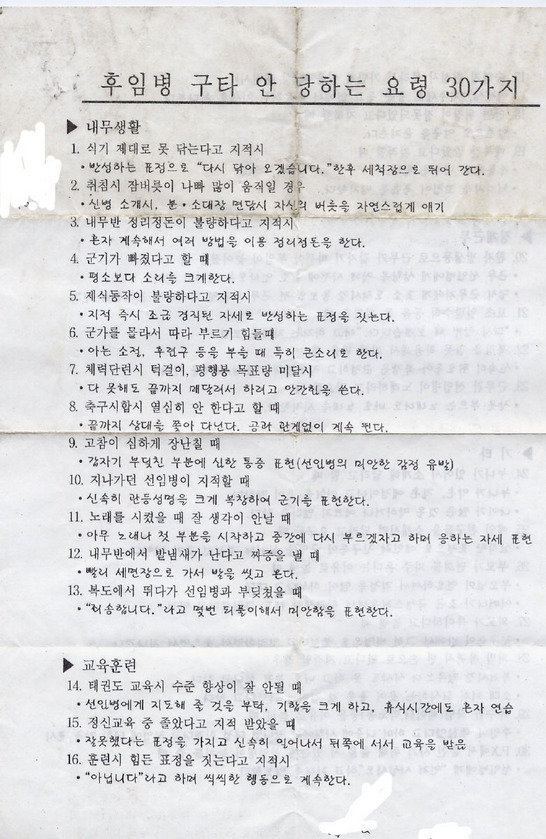 후임병 구타 안 당하는 요령 30가지
▶ 내무생활
1. 식기 제대로 못 닦는다고 지적시
• 반성하는 표정으로 “다시 닦아 오겠습니다.”한후 세척장으로 뛰어 간다.
2. 취침시 잠버릇이 나빠 많이 움직일 경우
• 신병 소개시, 분·소대장 면담시 자신의 버릇을 자연스럽게 얘기
3. 내무반 정리정돈이 불량하다고 지적시
• 혼자 계속해서 여러 방법을 이용 정리정돈을 한다.
4. 군기가 빠졌다고 할 때
• 평소보다 소리를 크게한다.
5. 제식동작이 불량하다고 지적시
• 지적 즉시 조금 경직된 자세로 반성하는 표정을 짓는다.
6. 군가를 몰라서 따라 부르기 힘들때
• 아는 소절, 후렴구 등을 부를 때 특히 큰소리로 한다.
7. 체력단련시 턱걸이, 평행봉 목표량 미달시
• 다 못해도 끝까지 매달려서 하려고 안간힘을 쓴다.
8. 축구시합시 열심히 안 한다고 할 때
• 끝까지 상대를 쫓아 다닌다. 공과 관계없이 계속 뛴다.
9. 고참이 심하게 장난칠 때
• 갑자기 부딪친 부분에 심한 통증 표현(선임병의 미안한 감정 유발)
10. 지나가던 선임병이 지적할 때
• 신속히 관등성명을 크게 복창하여 군기를 표현한다.
11. 노래를 시켰을 때 잘 생각이 안날 때
• 아무 노래나 첫 부분을 시작하고 중간에 다시 부르겠자고 하며 응하는 자세 표현
12. 내무반에서 발냄새가 난다고 짜증을 낼 때
• 빨리 세면장으로 가서 발을 씻고 온다.
13. 복도에서 뛰다가 선임병과 부딪쳤을 때
• “죄송합니다.”라고 몇번 되풀이해서 미안함을 표현한다.
▶ 교육훈련
14. 태권도 교육시 수준 향상이 잘 안될 때
• 선임병에게 지도해 줄 것을 부탁, 기합을 크게 하고, 휴식시간에도 혼자 연습
15. 정신교육 중 졸았다고 지적 받았을 때
• 잘못했다는 표정을 가지고 신속히 일어나서 뒤쪽에 서서 교육을 받음
16. 훈련시 힘든 표정을 짓는다고 지적시
• “아닙니다”라고 하며 씩씩한 행동으로 계속한다.